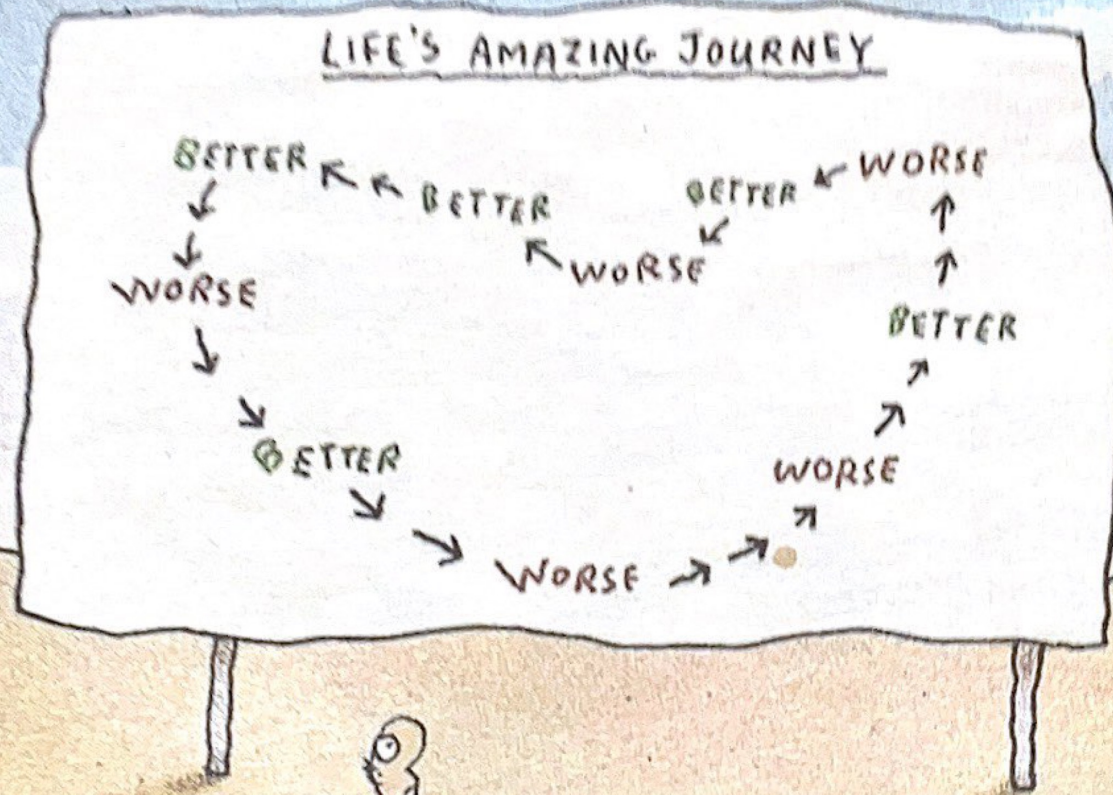 LIFE'S AMAZING JOURNEY
BETTER
BETTER
WORSE
BETTER
WORSE
WORSE
BETTER
BETTER
WORSE
WORSE